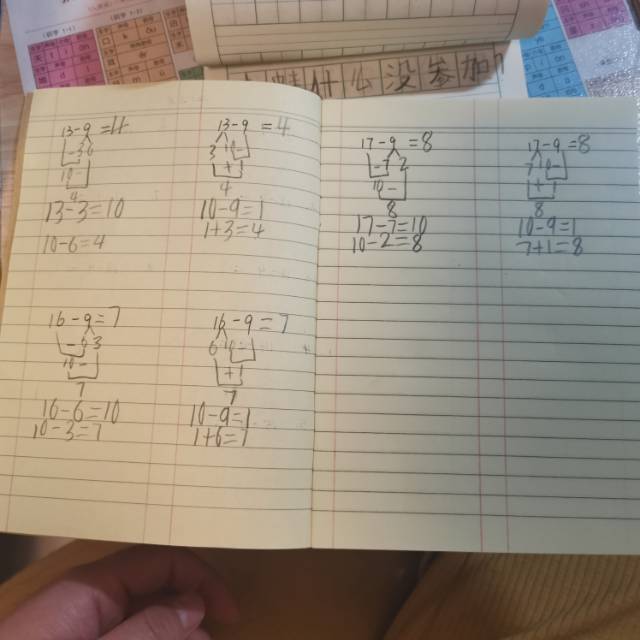 什么没参加
13-9=4
3 6
10-
4
13-3=10
10-6=4
13-9=4
3 10-
+
4
10-9=1
1+3=4
16-9=7
6 3
10-
7
16-6=10
10-3=7
16-9=7
6 10-
+
7
10-9=1
1+6=7
17-9=8
7 2
10-
8
17-7=10
10-2=8
17-9=8
7 10-
+
8
10-9=1
7+1=8